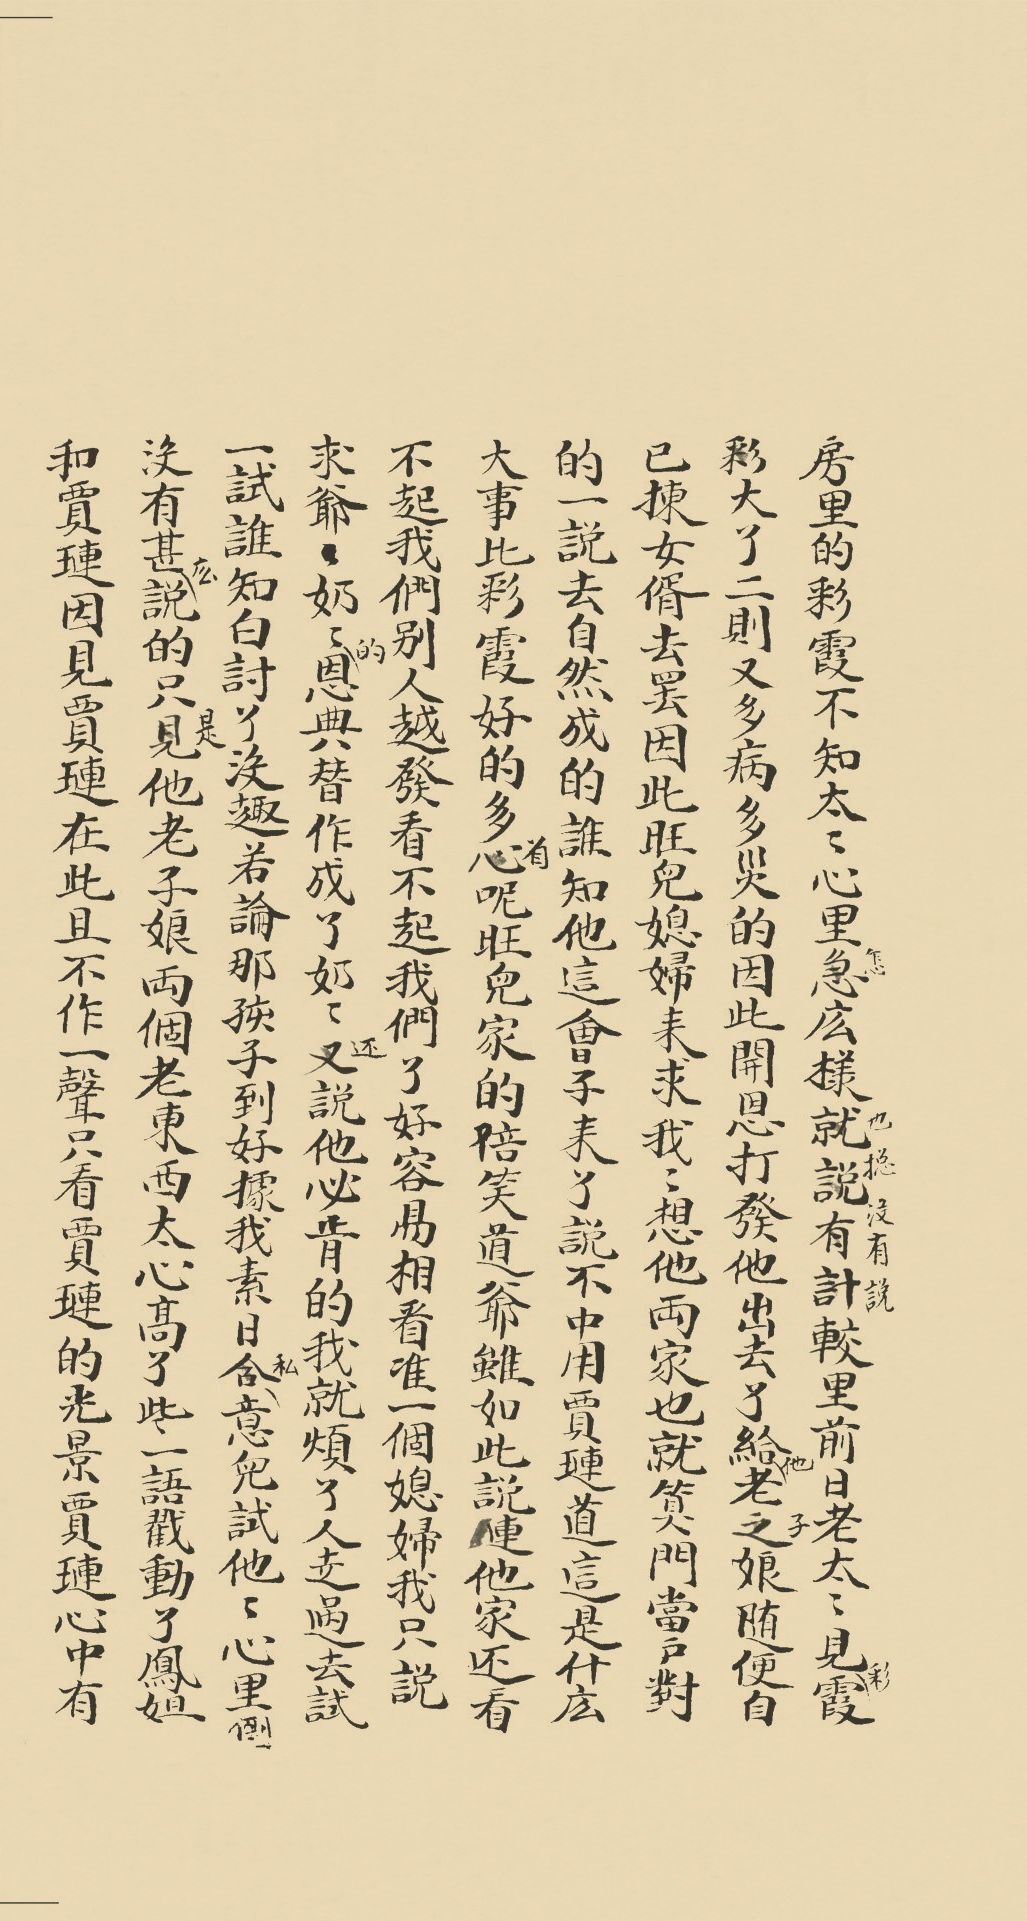 房里的彩霞不知太〻心里急怎庅樣就也捴沒有說說有計較里前日老太〻見彩霞
彩大了二則又多病多災的因此開恩打發他出去了給他老子之娘随便自
已揀女婿去罢因此旺兒媳婦来求我〻想他両家也就筭門當户對
的一説去自然成的誰知他這會子来了説不中用賈璉道這是什庅
大事比彩霞好的多有心呢旺兒家的陪笑道爺雖如此説連他家还看
不起我們别人越發看不起我們了好容易相看准一個媳婦我只説
求爺〻奶〻的恩典替作成了奶〻还又説他必肯的我就煩了人走過去試
一試誰知白討了沒趣若論那孩子到好據我素日私合意兒試他〻心里倒
沒有甚庅説的只是見他老子娘両個老東西太心髙了些一語戳動了鳳姐
和賈璉因見賈璉在此且不作一聲只看賈璉的光景賈璉心中有